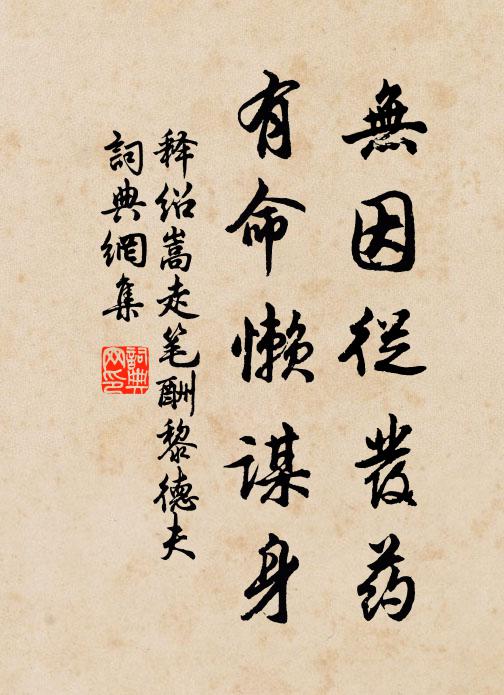 無因從發药
有命懒謀身
释绍嵩走笔酬黎德夫
詞典網集
詞典
网印